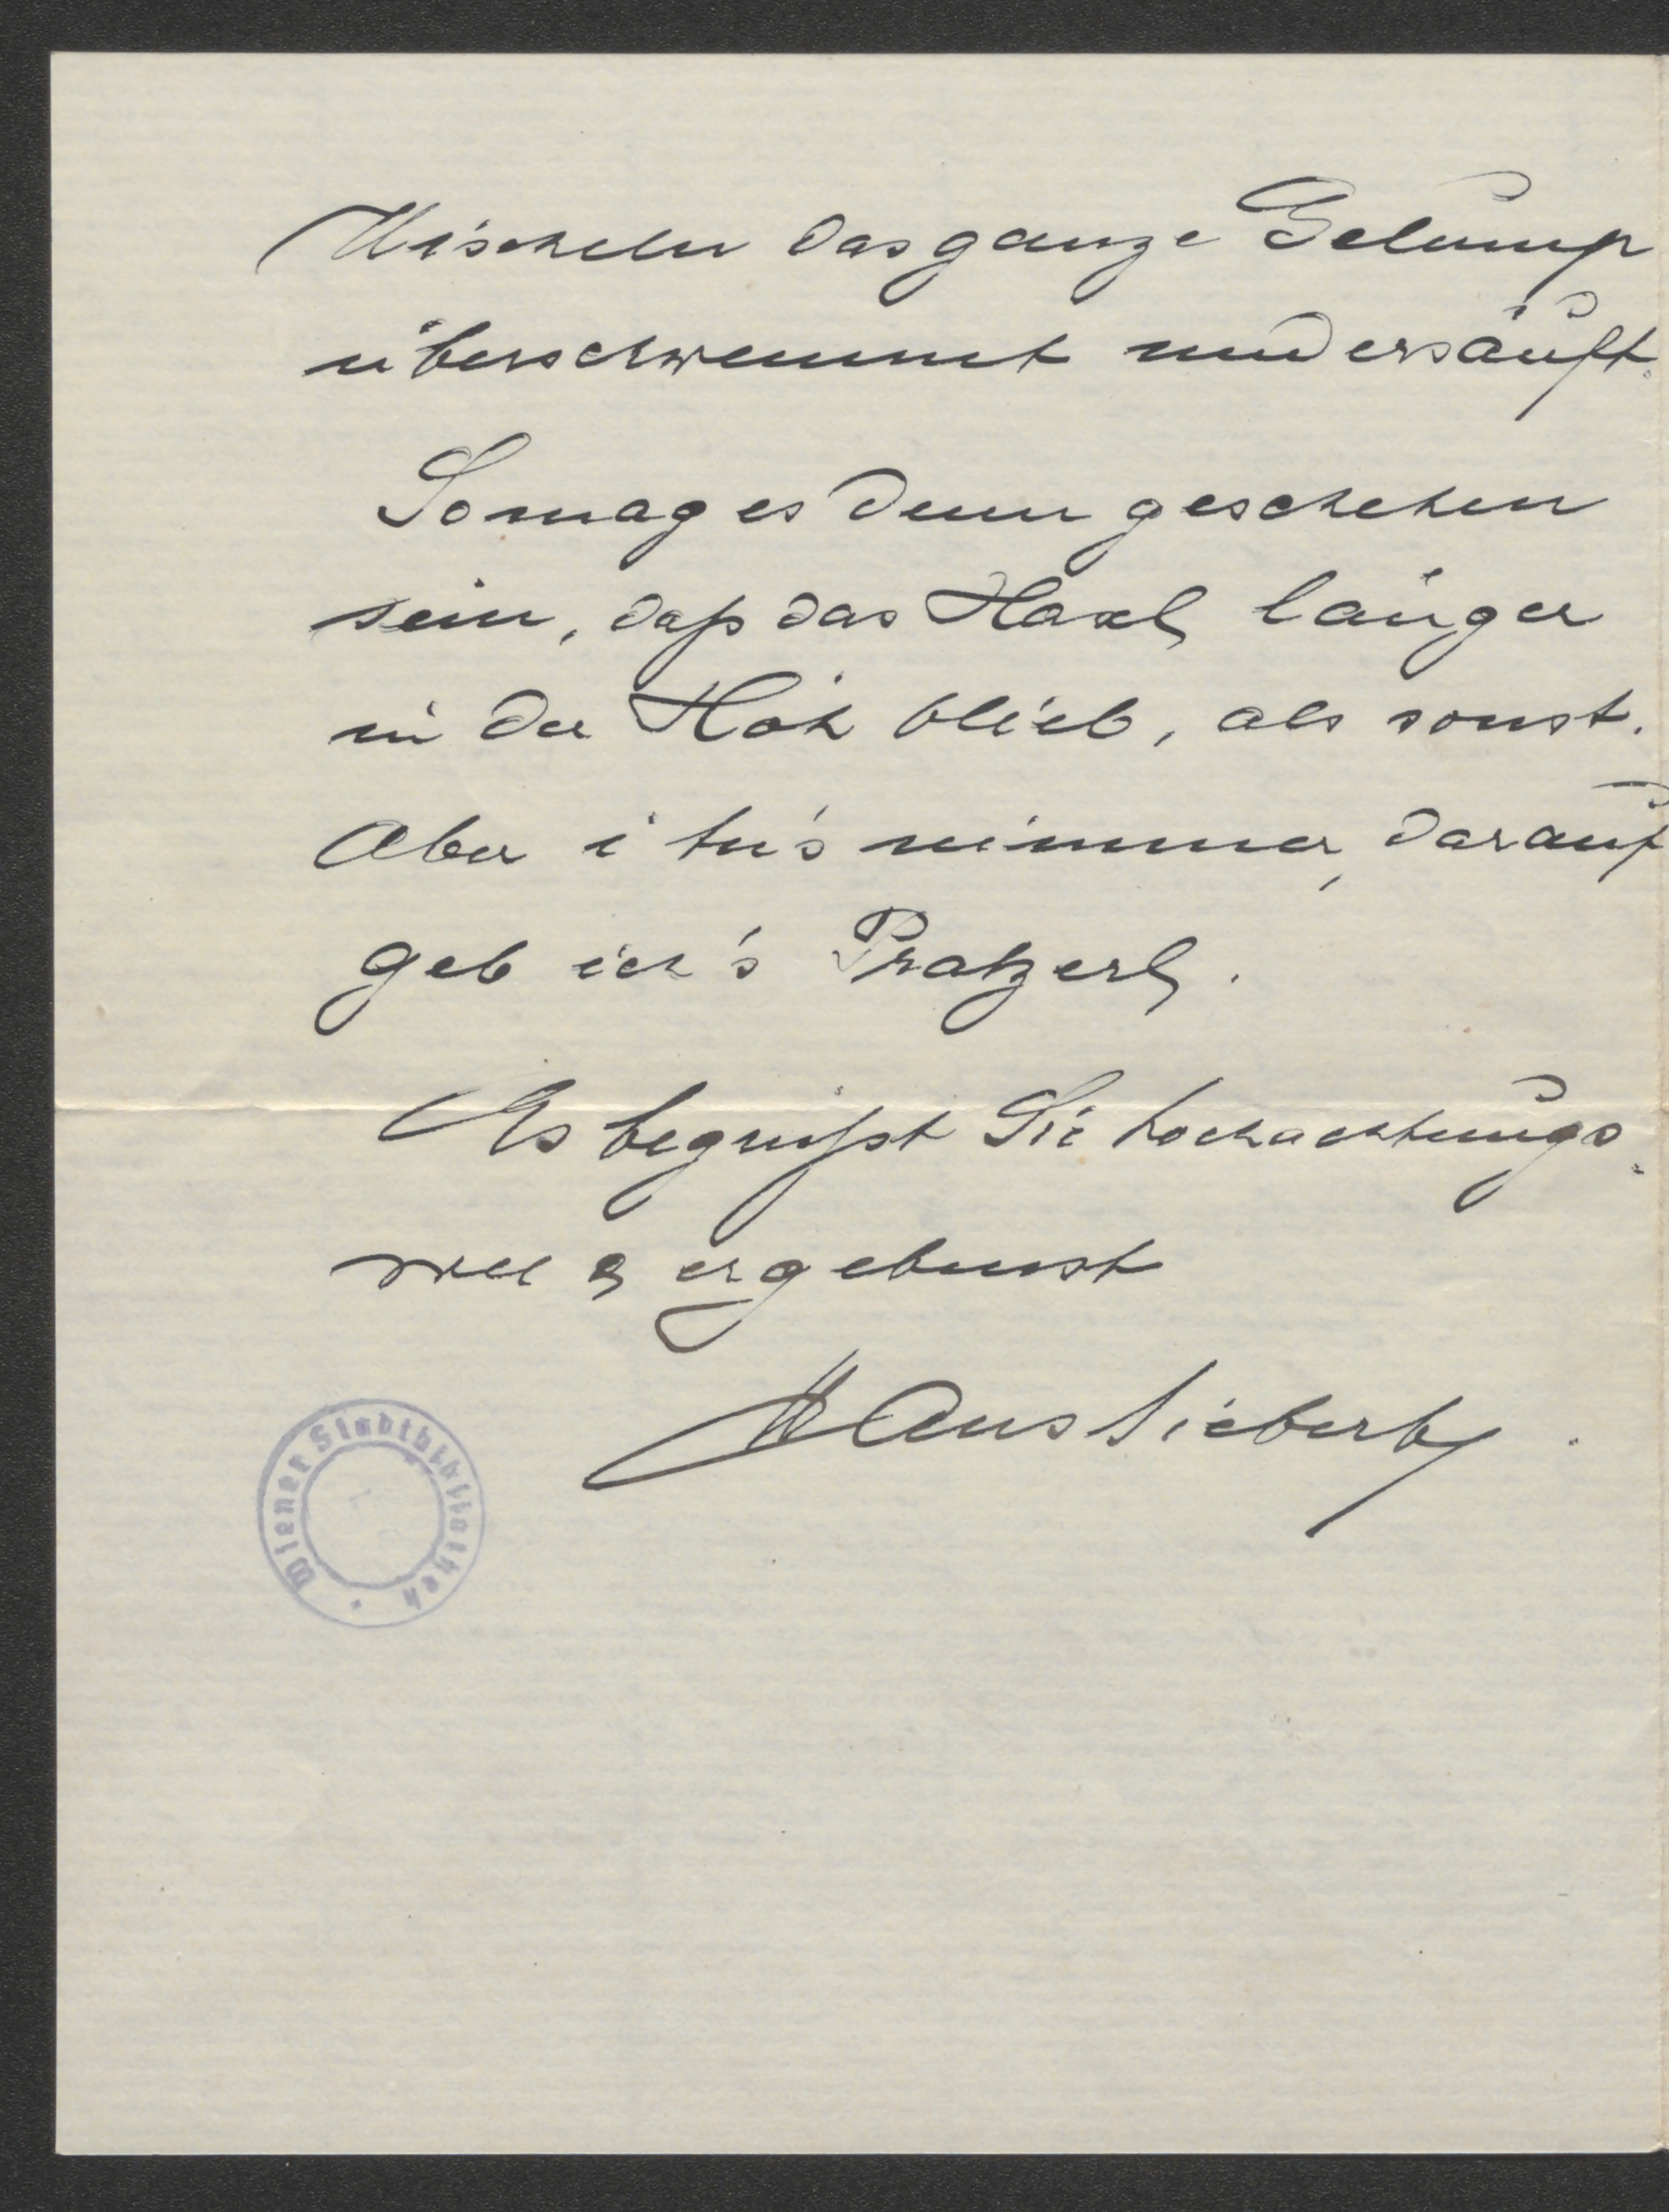 Mischeln das ganze Gelump
überschwemmt und ersäuft.
So mag es denn geschehen
sein, daß das Haxl länger
in der Höh blieb, als sonst.
Aber i tu's nimmer, darauf
geb ich's Pratzerl.
Es begrüßt Sie hochachtungs-
voll & ergebenst
Hans Sieberty.
Wiener Stadtbibliothek